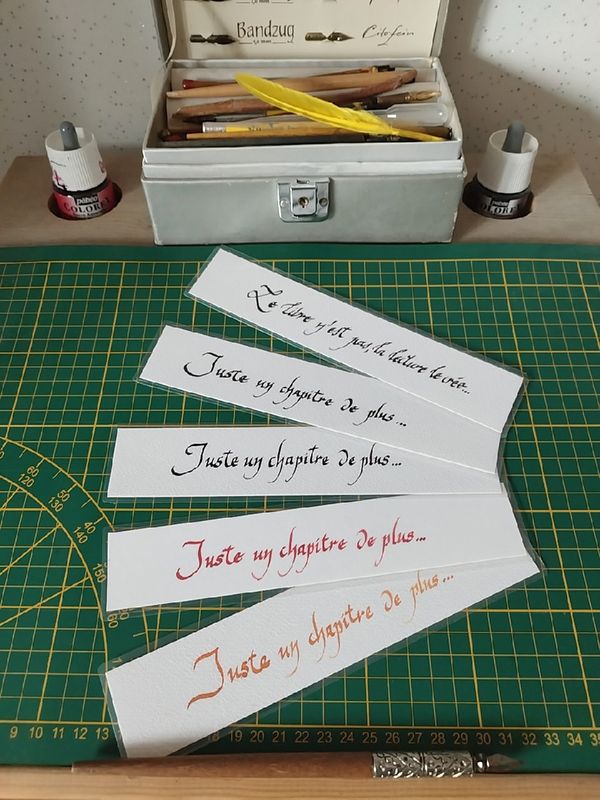 Bandzug
Citofein
pébéo
COLOREX
pébéo
COLOREX
Le livre n'est pas, la lecture le crée...
Juste un chapitre de plus...
Juste un chapitre de plus...
Juste un chapitre de plus...
Juste un chapitre de plus...
120
50
130
40
140
150
9 10 11 12 13 18 19 20 21 22 23 24 25 26 27 28 29 30 31 32 33 34 35